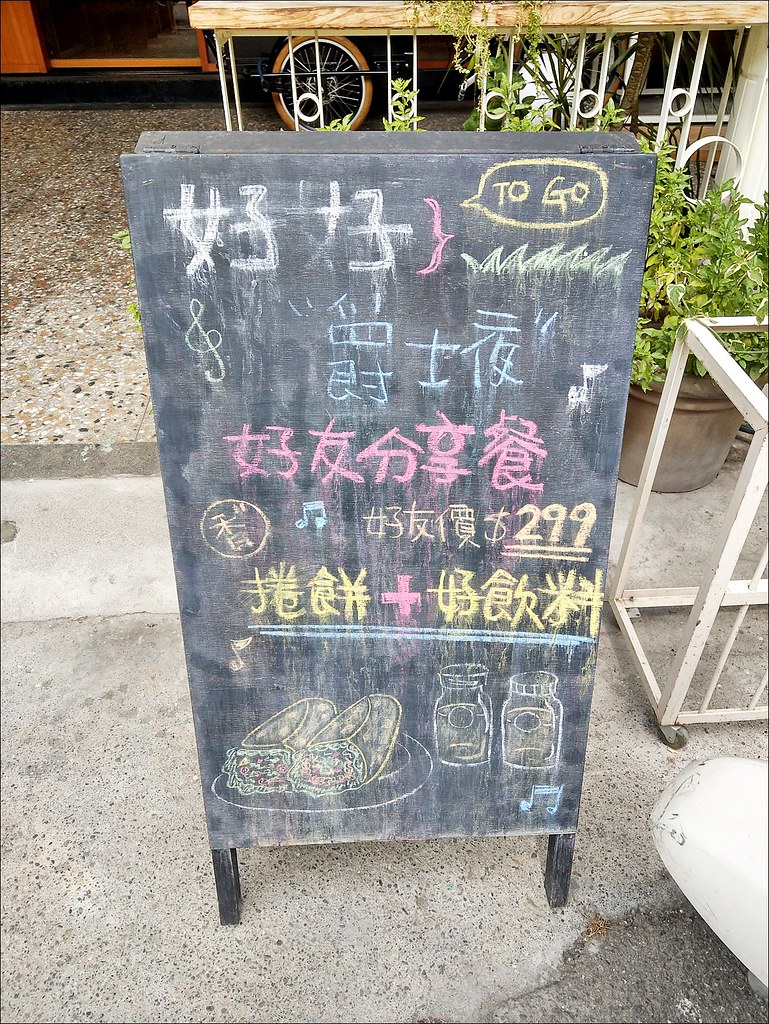 好好} TO GO
"爵士夜"
好友分享餐
香 好友價 $299
捲餅+好飲料